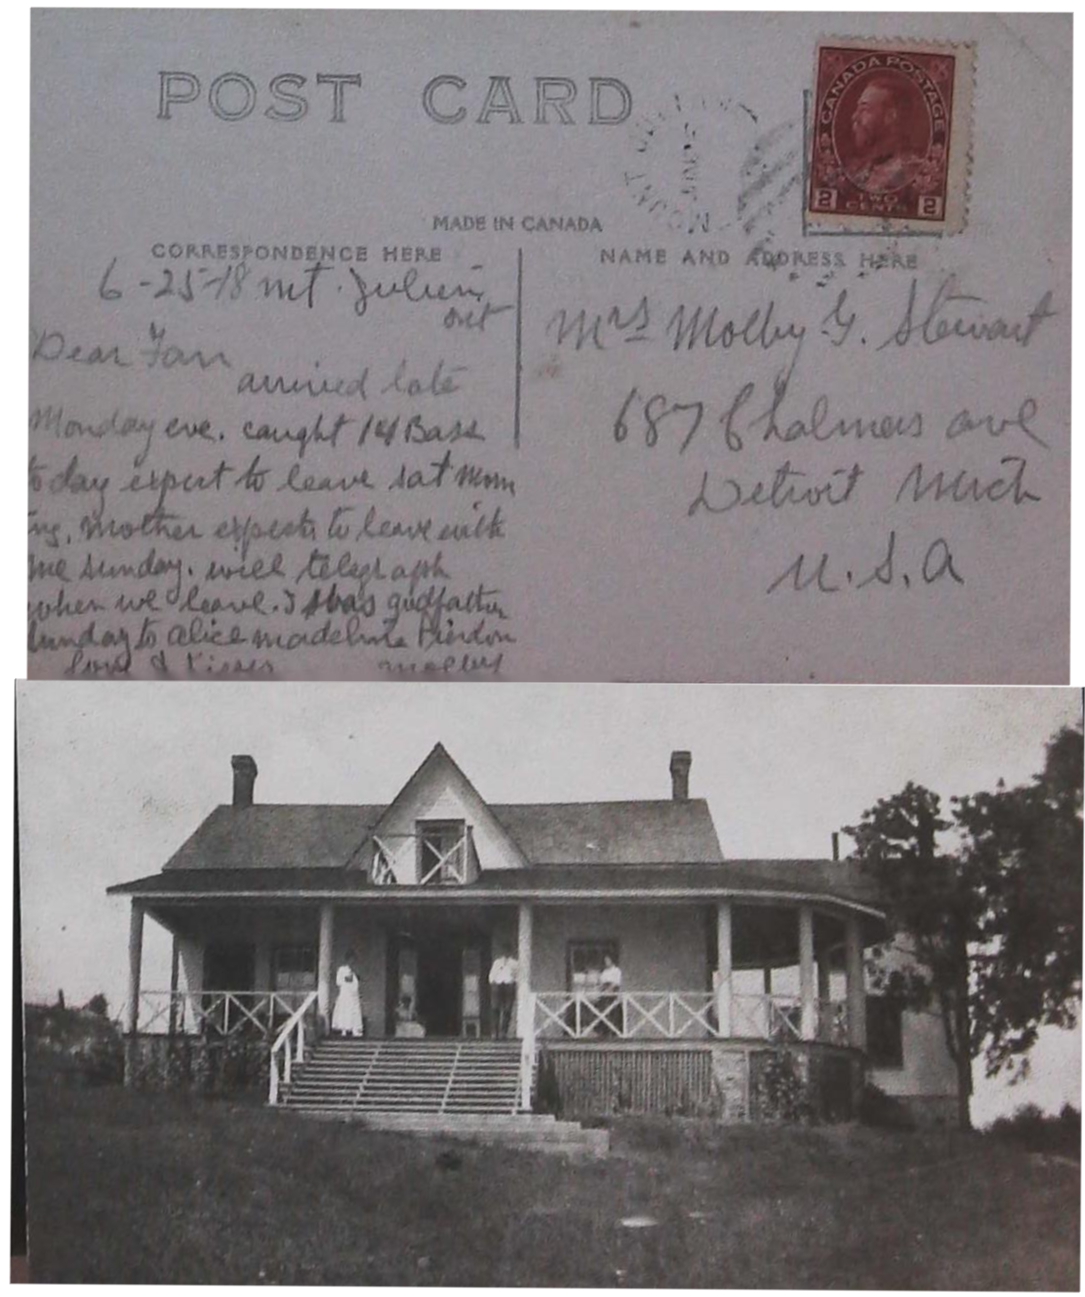 POST CARD
CANADA POSTAGE
2 TWO CENTS 2
MOUNT
MADE IN CANADA
CORRESPONDENCE HERE
NAME AND ADDRESS HERE
6-25-18 Mt. Julien
Ont
Dear Fan
arrived late
Monday eve. caught 14 Bass
to day expect to leave sat Morn
ing, Mother expects to leave with
me Sunday. will telegraph
when we leave. I was godfather
Sunday to Alice Madeline
love & kisses Molby
Mrs Molby G. Stewart
687 Chalmers ave
Detroit Mich
U.S.A